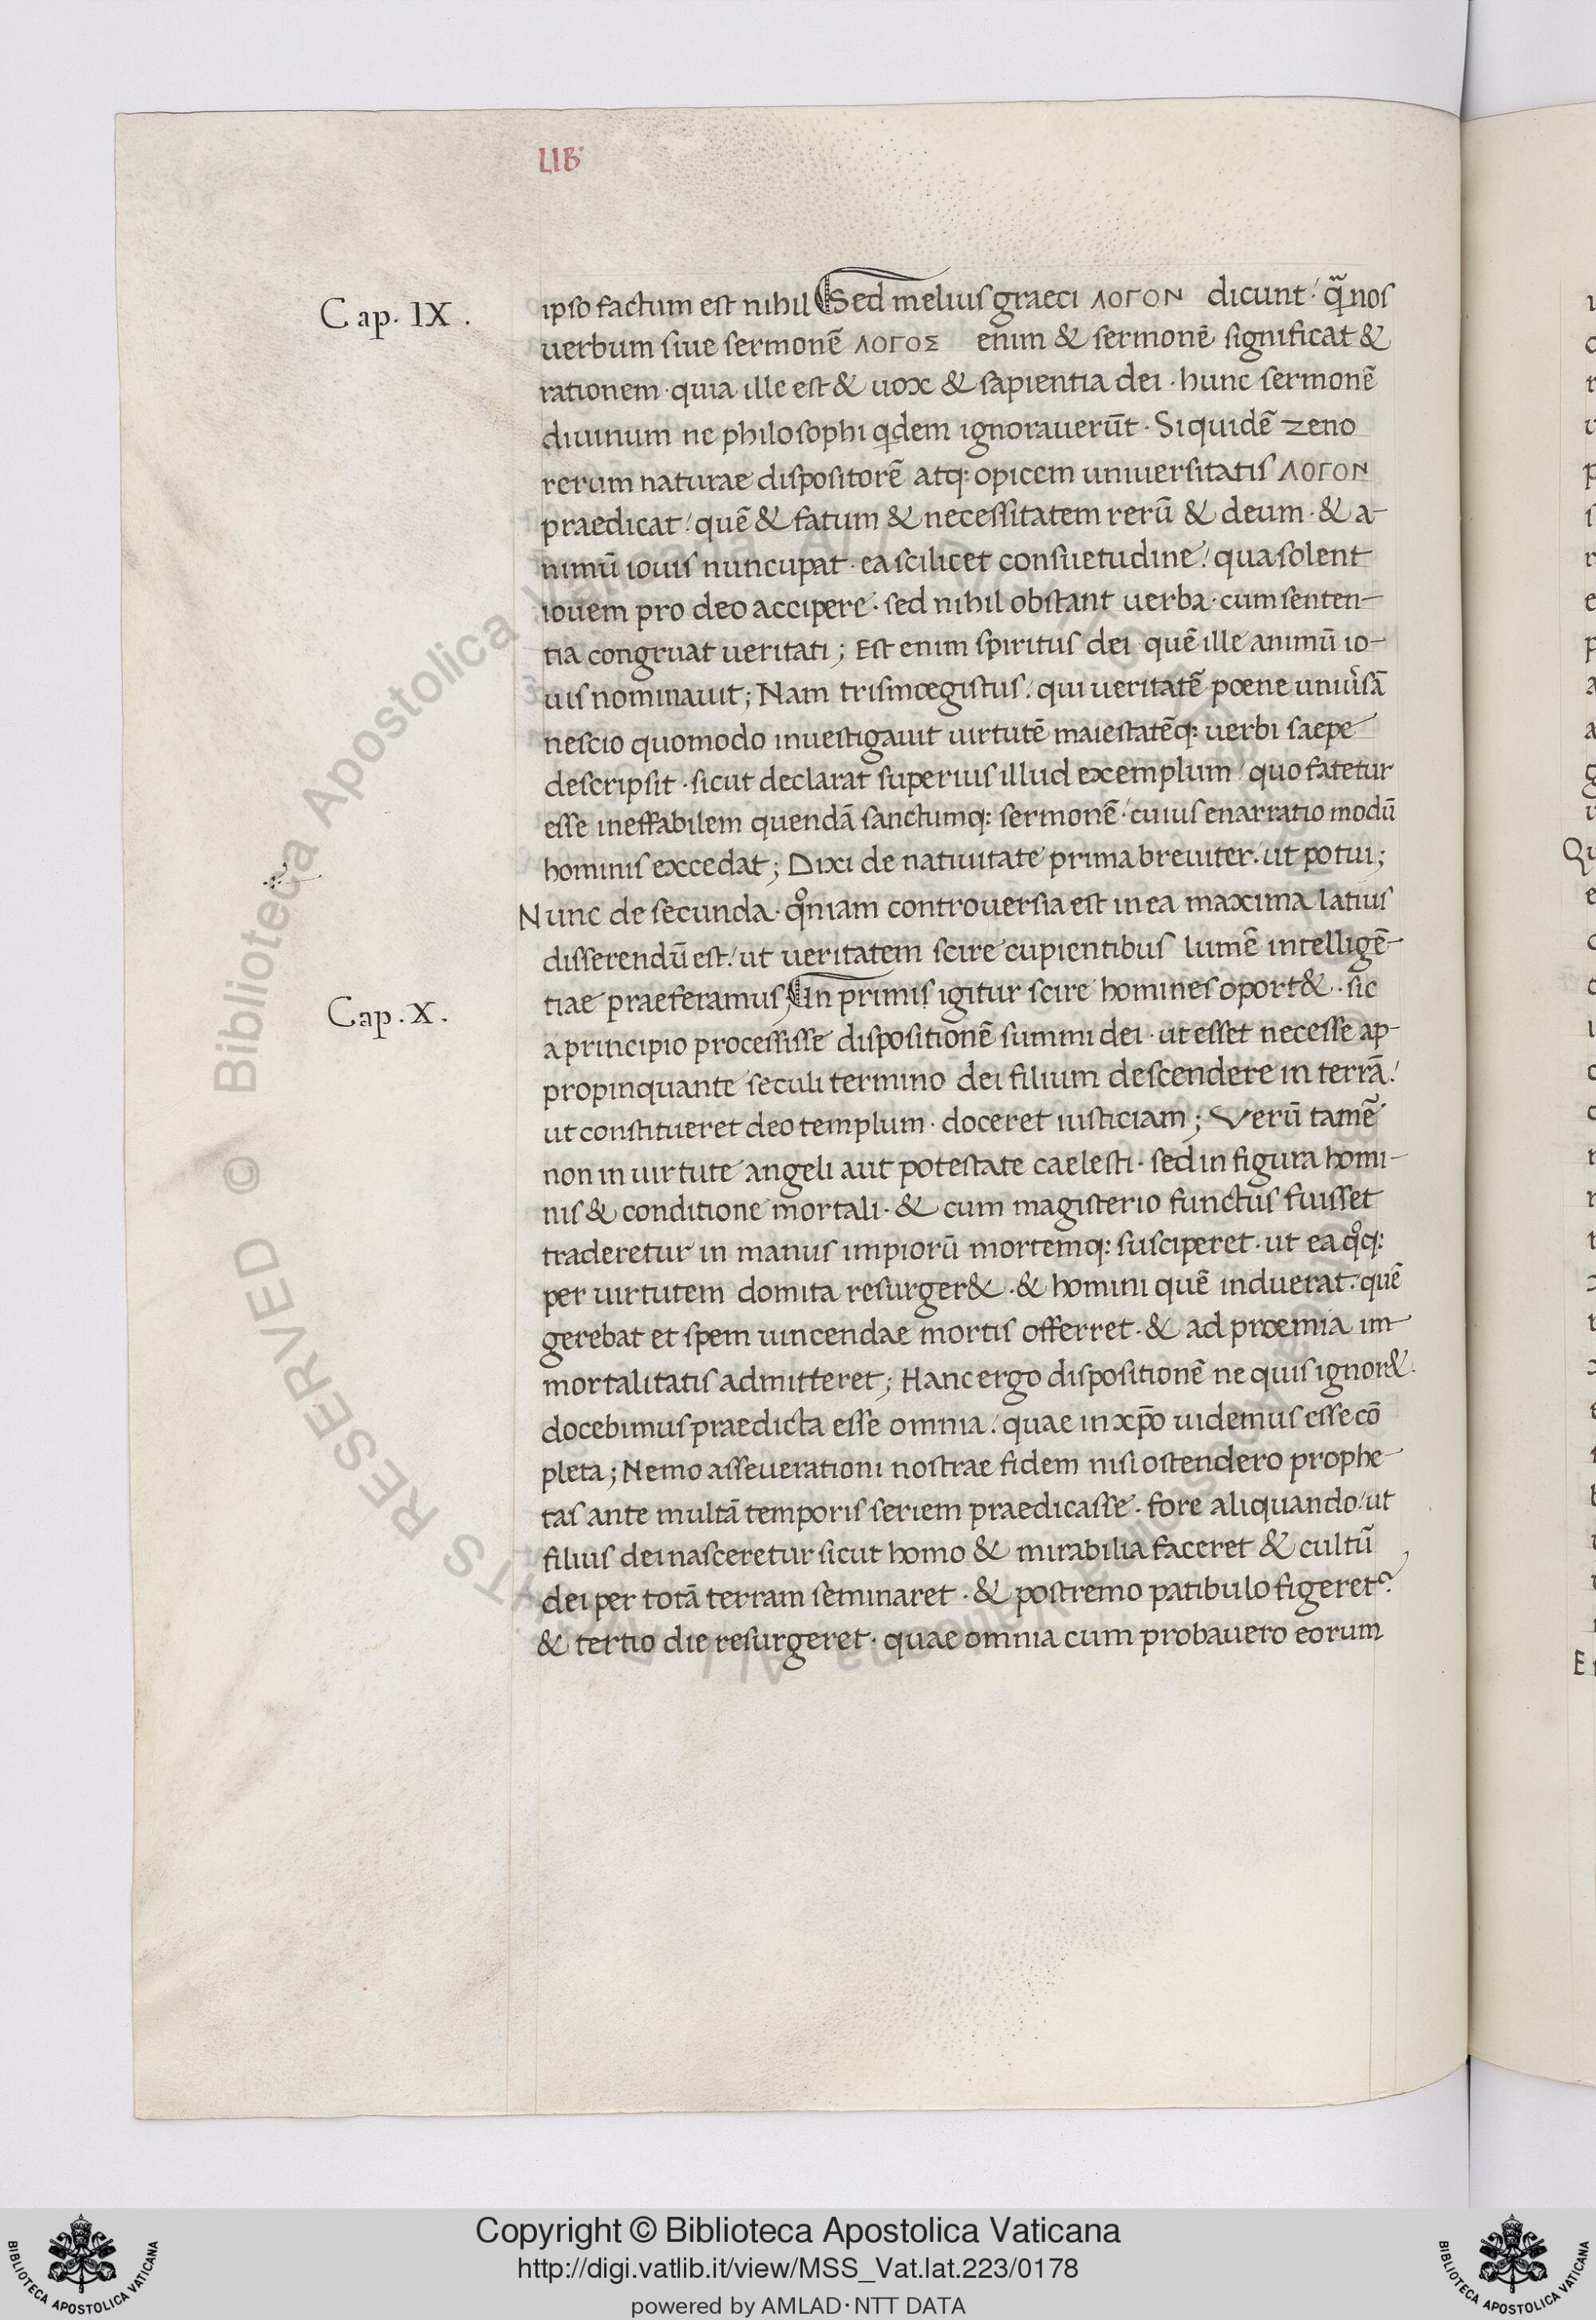 LIB·
Cap. IX.
ipso factum est nihil Sed melius graeci ΛΟΓΟΝ dicunt· q̃ nos
uerbum siue sermonẽ ΛΟΓΟΣ enim & sermonẽ significat &
rationem· quia ille est & uox & sapientia dei· hunc sermonẽ
diuinum ne philosophi qdem ignorauerũt· Siquidẽ zeno
rerum naturae dispositorẽ atq: opicem uniuersitatis ΛΟΓΟΝ
praedicat· quẽ & fatum & necessitatem rerũ & deum· & a-
nimũ iouis nuncupat· ea scilicet consuetudine· qua solent
iouem pro deo accipere· sed nihil obstant uerba· cum senten-
tia congruat ueritati; Est enim spiritus dei· quẽ ille animũ io-
uis nominauit; Nam trismoegistus· qui ueritatẽ poene uniuˢsã
nescio quomodo inuestigauit uirtutẽ maiestatẽq: uerbi saepe
descripsit· sicut declarat superius illud exemplum· quo fatetur
esse ineffabilem quendã sanctumq: sermonẽ· cuius enarratio modũ
hominis excedat; Dixi de natiuitate prima breuiter· ut potui;
Nunc de secunda· qͦniam controuersia est in ea maxima latius
disserendũ est· ut ueritatem scire cupientibus lumẽ intelligẽ-
Cap. X.
tiae praeferamus; In primis igitur scire homines oport&· sic
a principio processisse dispositionẽ summi dei· ut esset necesse ap-
propinquante seculi termino dei filium descendere in terrã·
ut constitueret deo templum· doceret iusticiam; Verũ tamẽ
non in uirtute angeli aut potestate caelesti· sed in figura homi-
nis & conditione mortali· & cum magisterio functus fuisset
traderetur in manus impiorũ mortemq: susciperet· ut ea qͦq:
per uirtutem domita resurger&· & homini quẽ induerat· quẽ
gerebat et spem uincendae mortis offerret· & ad proemia im-
mortalitatis admitteret; Hanc ergo dispositionẽ ne quis ignor&·
docebimus praedicta esse omnia· quae in xp̃o uidemus esse cõ
pleta; Nemo asseuerationi nostrae fidem nisi ostendero prophe-
tas ante multã temporis seriem praedicasse· fore aliquando· ut
filius dei nasceretur sicut homo & mirabilia faceret & cultũ
dei per totã terram seminaret· & postremo patibulo figeret²
& tertio die resurgeret· quae omnia cum probauero eorum
Copyright © Biblioteca Apostolica Vaticana
http://digi.vatlib.it/view/MSS_Vat.lat.223/0178
powered by AMLAD·NTT DATA